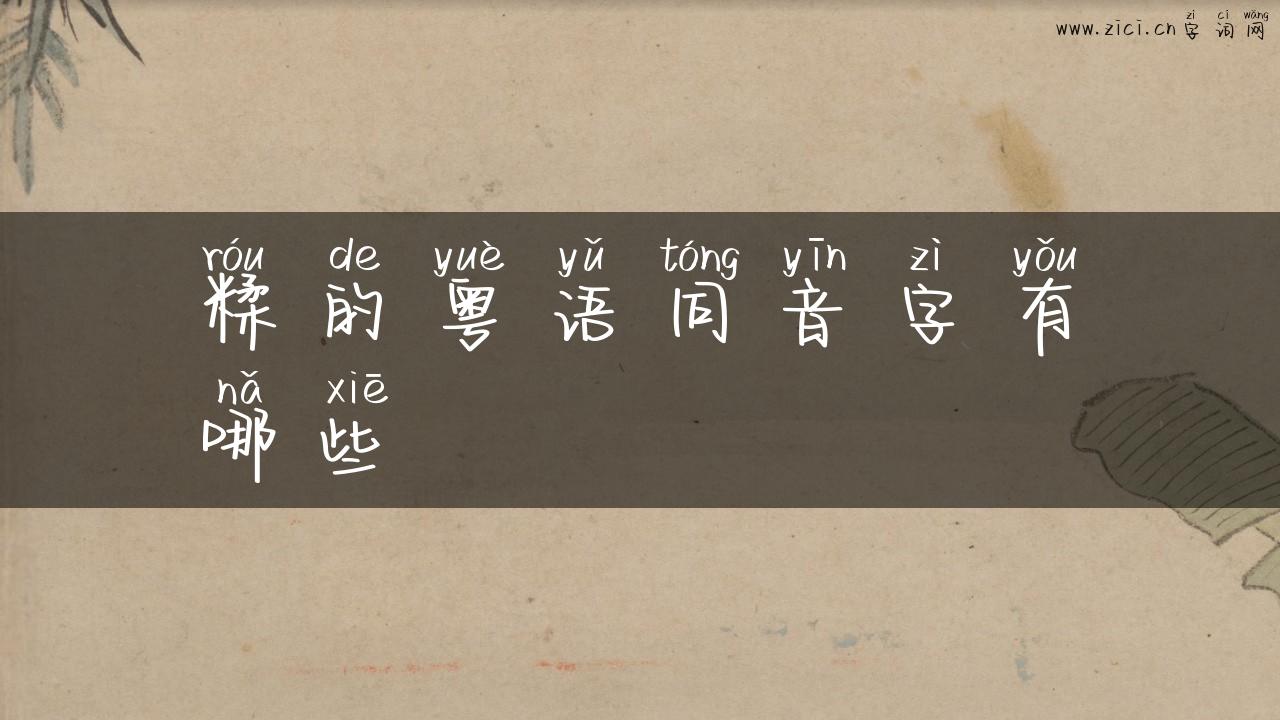 zì cí wǎng
www.zici.cn 字词网
róu de yuè yǔ tóng yīn zì yǒu
糅的粤语同音字有
nǎ xiē
哪些